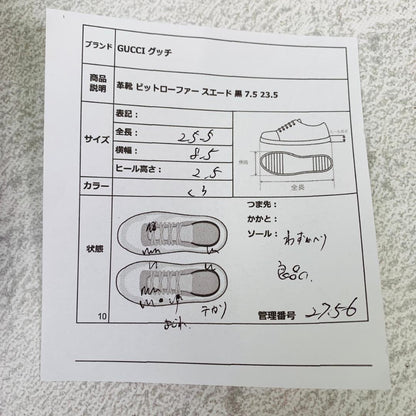 ブランド GUCCI グッチ
商品説明 革靴 ビットローファー スエード 黒 7.5 23.5
サイズ
表記：
全長： 25.5
横幅： 8.5
ヒール高さ： 2.5
ヒール高さ
横幅
全長
カラー くろ
状態
つま先：
かかと：
ソール： わずかへり
良品
テカリ
よごれ
10
管理番号 2756